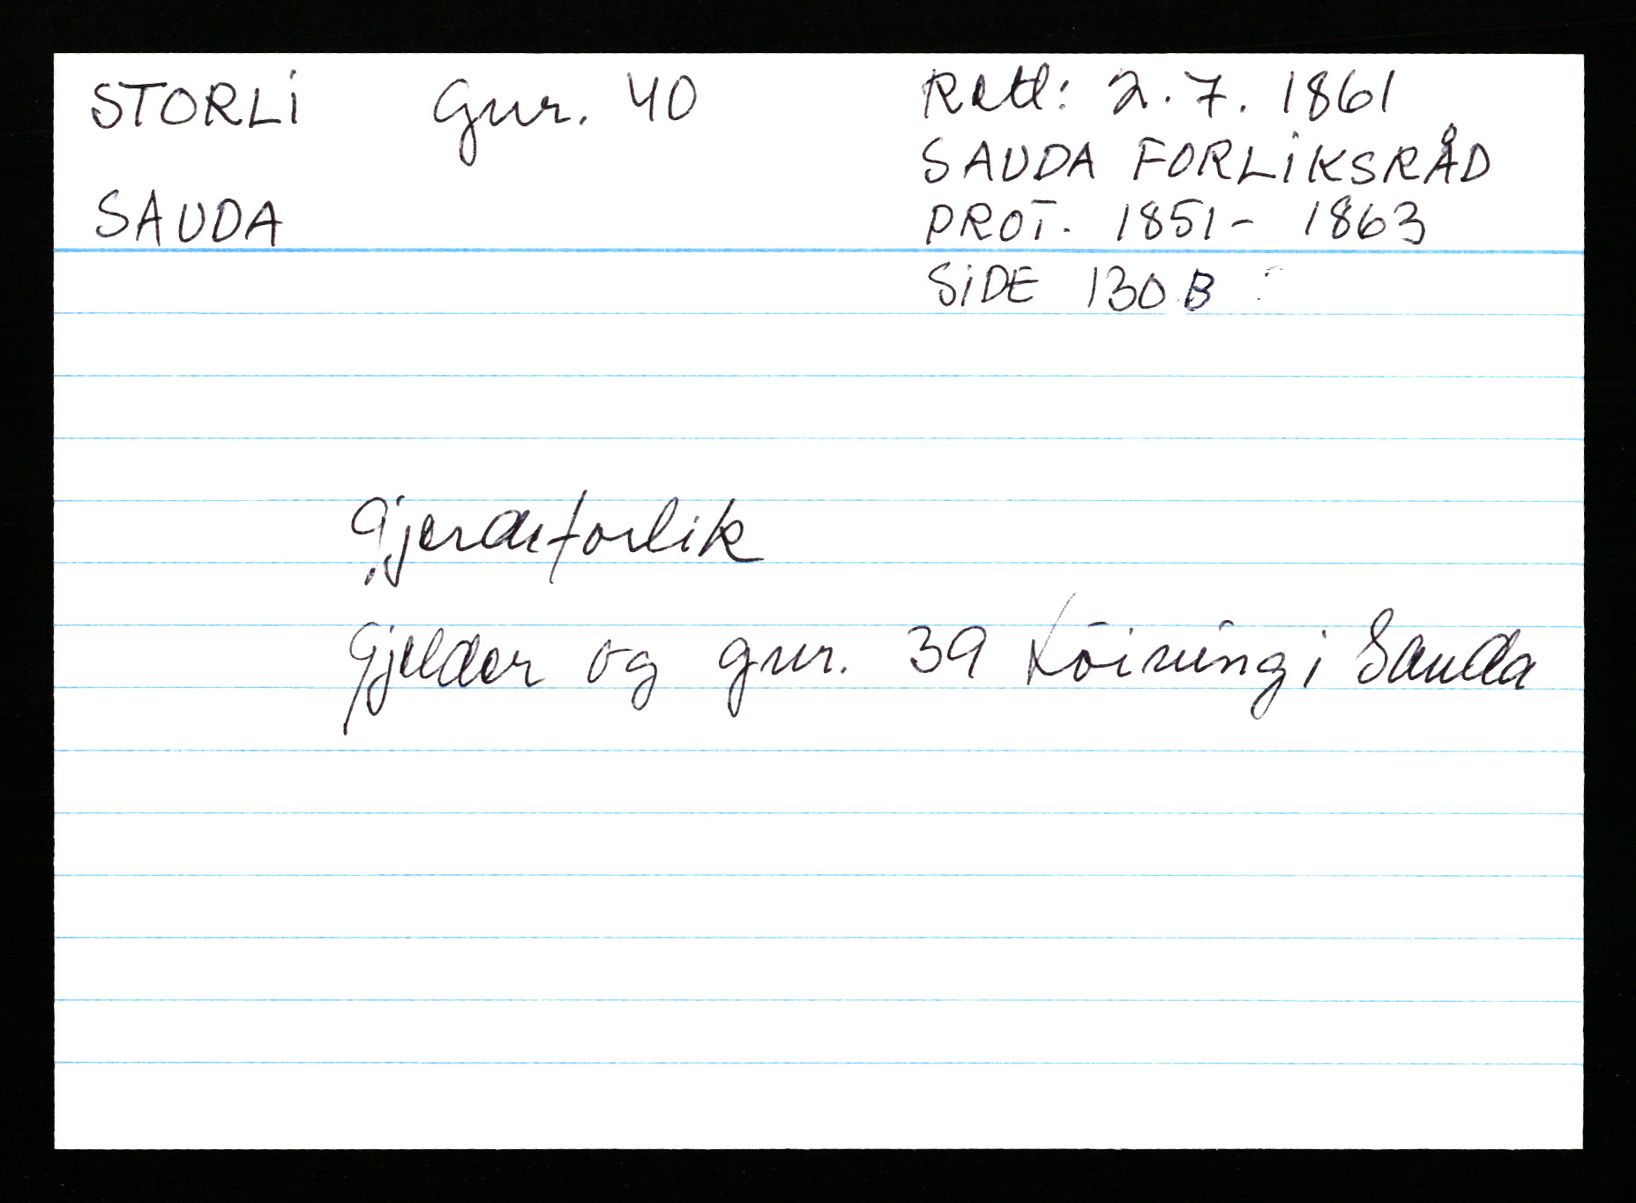 STORLI Gnr. 40
SAUDA
Retl: 2.7.1861
SAUDA FORLIKSRÅD
PROT. 1851-1863
SIDE 130 B
Gjerdeforlik
Gjelder og gnr. 39 Löining i Sauda